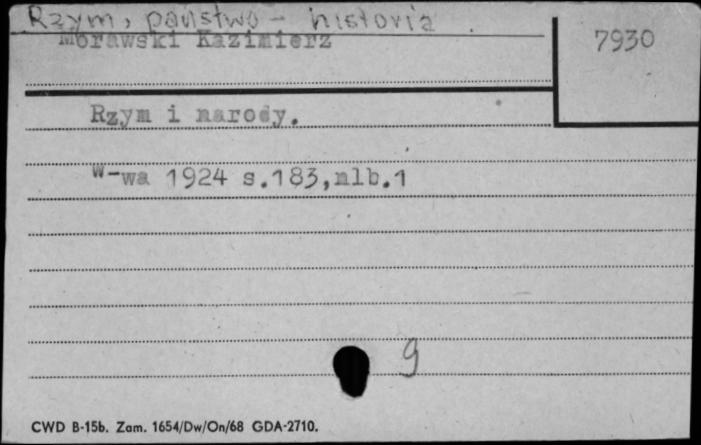 Rzym, państwo - historia
Morawski Kazimierz
7930
Rzym i narody.
W-wa 1924 s.183,nlb.1
9
CWD B-15b. Zam. 1654/Dw/On/68 GDA-2710.